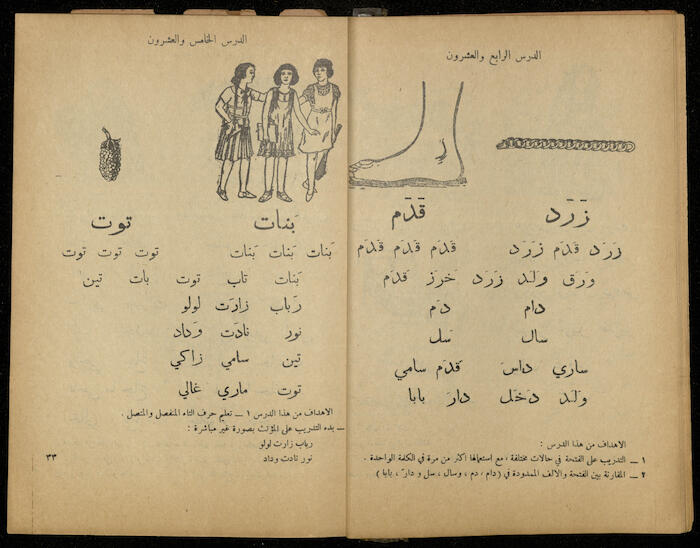 الدرس الرابع والعشرون
زَرَد قَدَم
زَرَد قَدَم زَرَد قَدَم قَدَم قَدَم
وَرَق وَلَد زَرَد خَرَز قَدَم
دام دَم
سال سَل
ساري داسَ قَدَم سامي
وَلَد دَخَل دارَ بابا
الاهداف من هذا الدرس :
١ — التدريب على الفتحة في حالات مختلفة ، مع استعمالها اكثر من مرة في الكلمة الواحدة .
٢ — المقارنة بين الفتحة والالف الممدودة في ( دام ، دم ، وسال ، سل و دارَ ، بابا )
الدرس الخامس والعشرون
بَنات توت
بَنات بَنات بَنات توت توت توت
بَنات تاب توت بات تين
رَباب زارَت لولو
نور نادَت وَداد
تين سامي زاكي
توت ماري غالي
الاهداف من هذا الدرس ١ — تعليم حرف التاء المنفصل والمتصل .
— بدء التدريب على المؤنث بصورة غير مباشرة :
رباب زارت لولو
نور نادت وداد
٣٣